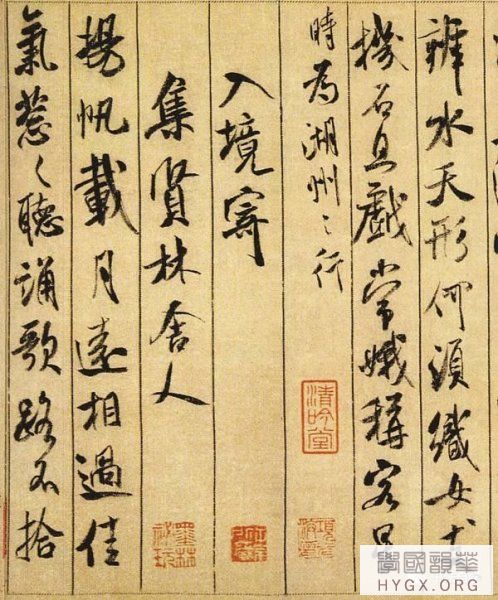 辨水天形何須織女支
機石且戲常娥稱客星
時為湖州之行
入境寄
集賢林舍人
揚帆載月遠相過佳
氣葱〻聽誦歌路不拾
清吟堂
學國韻華
HYGX.ORG